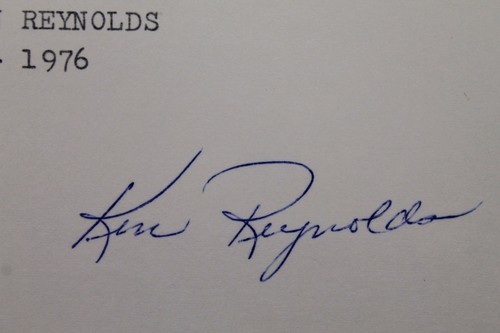 REYNOLDS
1976
Ken Reynolds